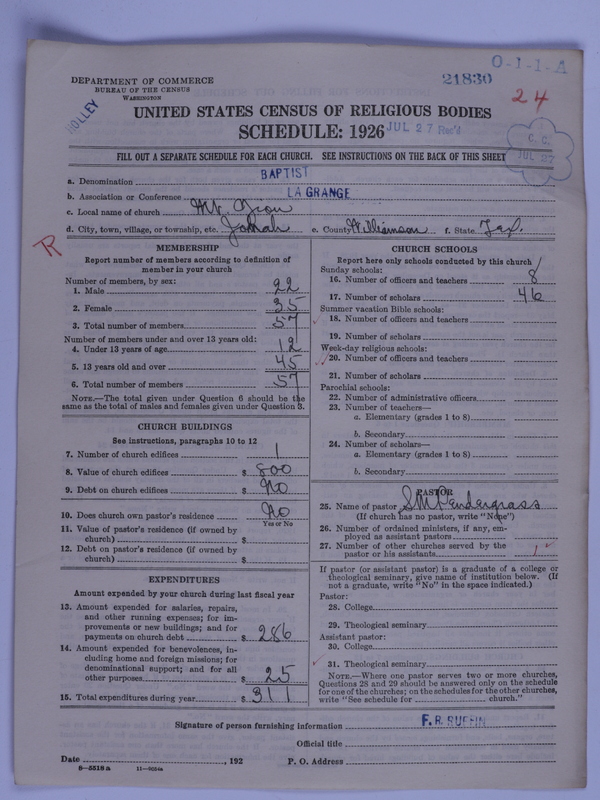 DEPARTMENT OF COMMERCE
BUREAU OF THE CENSUS
WASHINGTON
HOLLEY
21830
O-1-1-A
24
UNITED STATES CENSUS OF RELIGIOUS BODIES
SCHEDULE: 1926
JUL 27 Rec'd
C. C.
JUL 27
FILL OUT A SEPARATE SCHEDULE FOR EACH CHURCH. SEE INSTRUCTIONS ON THE BACK OF THIS SHEET
a. Denomination BAPTIST
b. Association or Conference LA GRANGE
c. Local name of church Mt. Zion
d. City, town, village, or township, etc. Jonah e. County Williamson f. State Tex.
R
MEMBERSHIP
Report number of members according to definition of
member in your church
Number of members, by sex:
1. Male 22
2. Female 35
3. Total number of members 57
Number of members under and over 13 years old:
4. Under 13 years of age 12
5. 13 years old and over 45
6. Total number of members 57
NOTE.—The total given under Question 6 should be the
same as the total of males and females given under Question 3.
CHURCH BUILDINGS
See instructions, paragraphs 10 to 12
7. Number of church edifices 1
8. Value of church edifices $ 800
9. Debt on church edifices $ No
10. Does church own pastor's residence No
Yes or No
11. Value of pastor's residence (if owned by
church) $
12. Debt on pastor's residence (if owned by
church) $
EXPENDITURES
Amount expended by your church during last fiscal year
13. Amount expended for salaries, repairs,
and other running expenses; for im-
provements or new buildings; and for
payments on church debt $ 286
14. Amount expended for benevolences, in-
cluding home and foreign missions; for
denominational support; and for all
other purposes $ 25
15. Total expenditures during year $ 311
CHURCH SCHOOLS
Report here only schools conducted by this church
Sunday schools:
16. Number of officers and teachers 8
17. Number of scholars 46
Summer vacation Bible schools:
18. Number of officers and teachers
19. Number of scholars
Week-day religious schools:
20. Number of officers and teachers
21. Number of scholars
Parochial schools:
22. Number of administrative officers
23. Number of teachers—
a. Elementary (grades 1 to 8)
b. Secondary
24. Number of scholars—
a. Elementary (grades 1 to 8)
b. Secondary
PASTOR
25. Name of pastor S M Pendergrass
(If church has no pastor, write "None")
26. Number of ordained ministers, if any, em-
ployed as assistant pastors
27. Number of other churches served by the
pastor or his assistants 1
If pastor (or assistant pastor) is a graduate of a college or
theological seminary, give name of institution below. (If
not a graduate, write "No" in the space indicated.)
Pastor:
28. College
29. Theological seminary
Assistant pastor:
30. College
31. Theological seminary
NOTE.—Where one pastor serves two or more churches,
Questions 28 and 29 should be answered only on the schedule
for one of the churches; on the schedules for the other churches,
write "See schedule for church."
Signature of person furnishing information F. R. RUFFIN
Official title
Date , 192 P. O. Address
8—5518 a 11—9024a